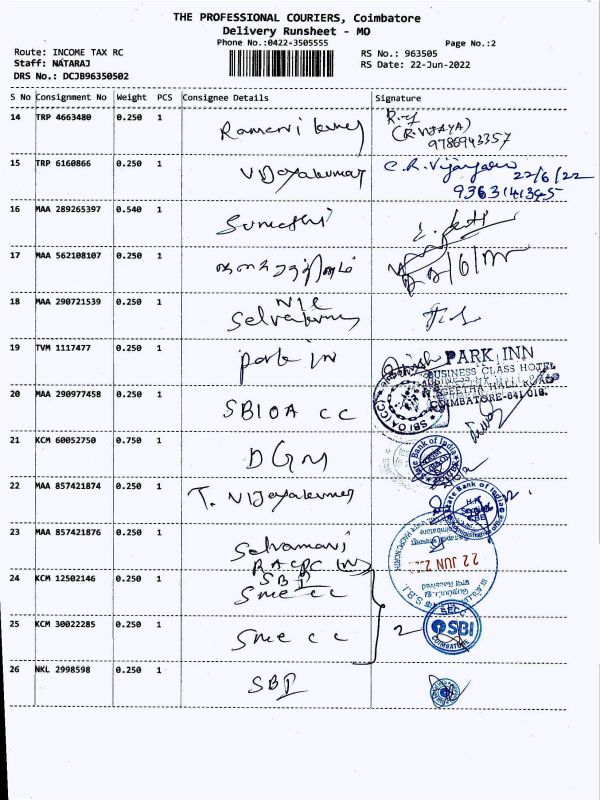 THE PROFESSIONAL COURIERS, Coimbatore
Delivery Runsheet - MO
Phone No.:0422-3505555
Page No.:2
Route: INCOME TAX RC
RS No.: 963505
Staff: NATARAJ
RS Date: 22-Jun-2022
DRS No.: DCJB96350502
S No Consignment No Weight PCS Consignee Details Signature
14 TRP 4663480 0.250 1
(R.VIJAYA)
9786943357
15 TRP 6160866 0.250 1 Vijayakumar
22/6/22
9363141345
16 MAA 289265397 0.540 1 Sumathi
17 MAA 562108107 0.250 1
18 MAA 290721539 0.250 1 Selvakumar
19 TVM 1117477 0.250 1 park in
PARK INN
BUSINESS CLASS HOTEL
GEETHA HALL ROAD
COIMBATORE-641 018.
20 MAA 290977458 0.250 1 SBIOA CC
SBI OA (CC)
21 KCM 60052750 0.750 1 DGM
State Bank of India
22 MAA 857421874 0.250 1 T. Vijayakumar
State Bank of India
23 MAA 857421876 0.250 1 Selvamani
RACPC
22 JUN
24 KCM 12502146 0.250 1 SBI
Sme cc
25 KCM 30022285 0.250 1 Sme cc
2
SECC
SBI
COIMBATORE
26 NKL 2998598 0.250 1 SBI